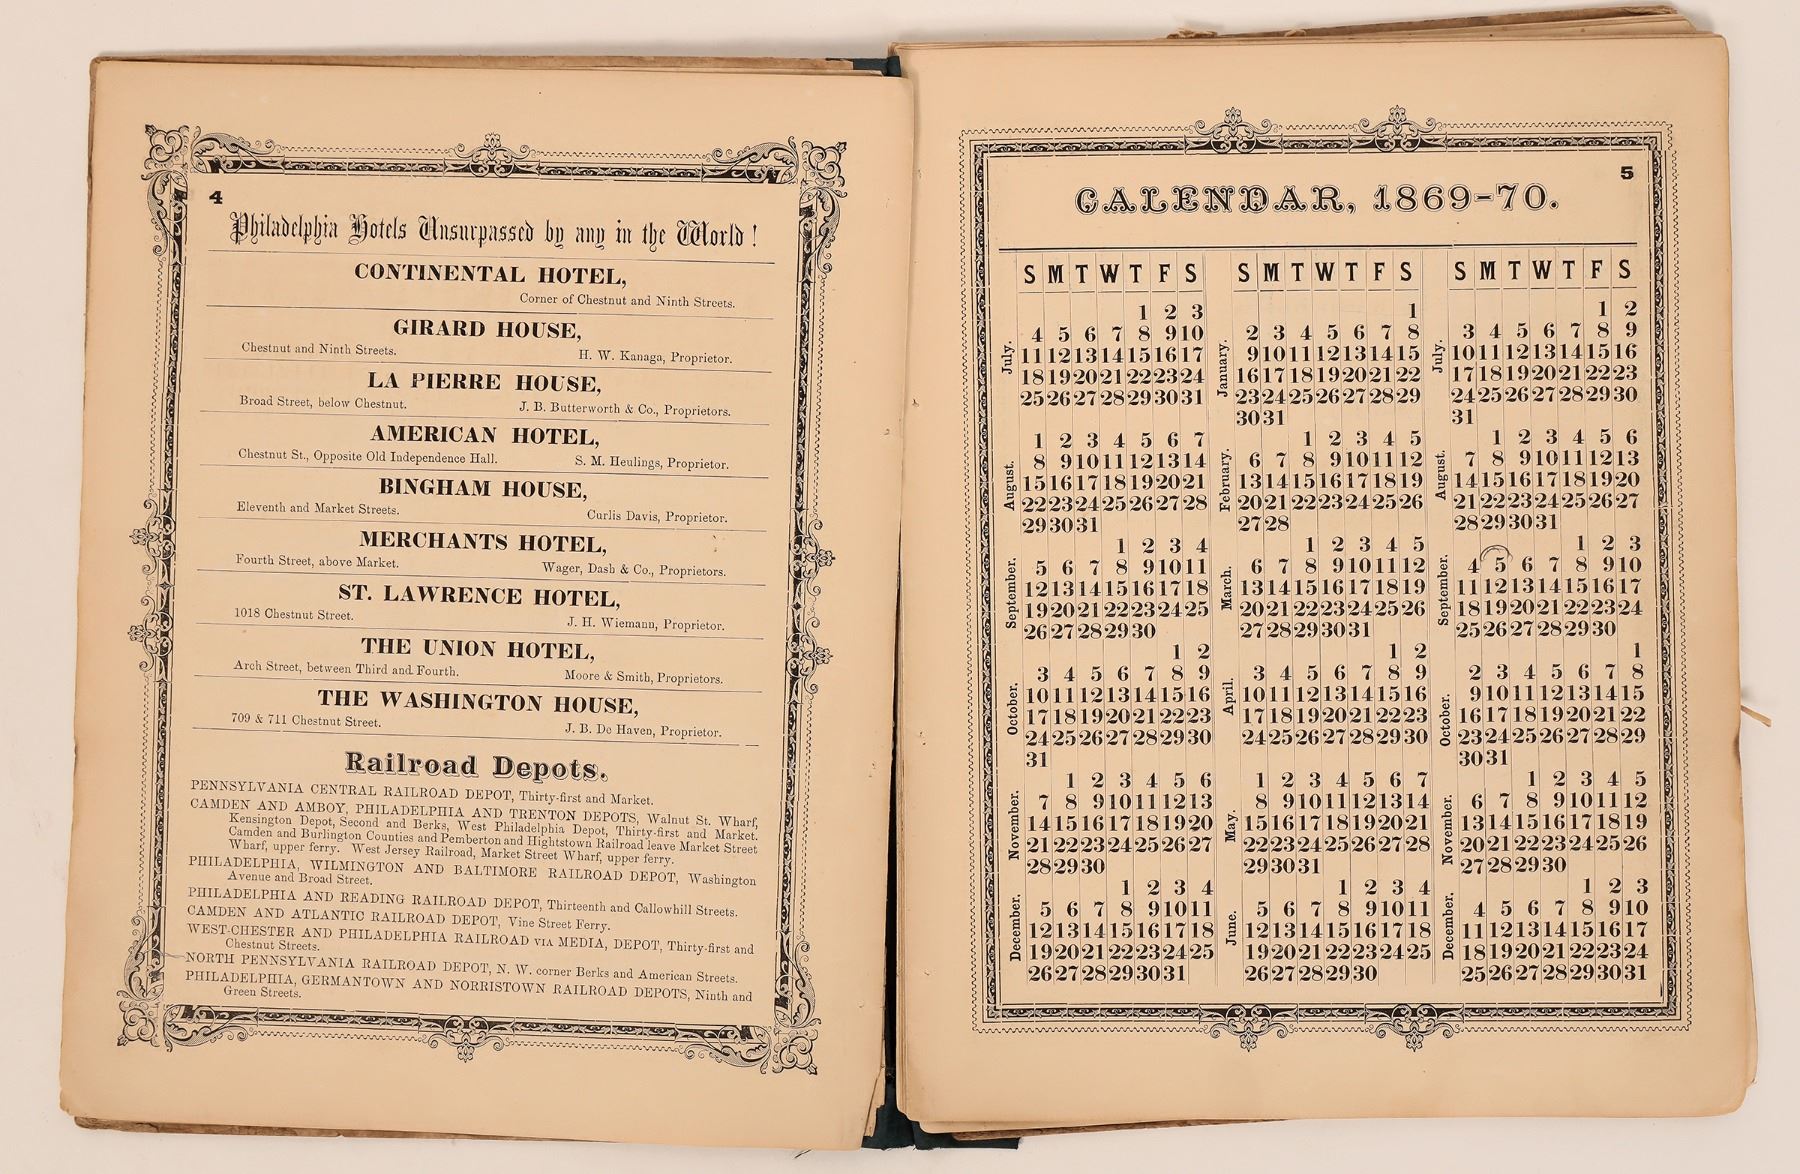 4
Philadelphia Hotels Unsurpassed by any in the World!
CONTINENTAL HOTEL,
Corner of Chestnut and Ninth Streets.
GIRARD HOUSE,
Chestnut and Ninth Streets. H. W. Kanaga, Proprietor.
LA PIERRE HOUSE,
Broad Street, below Chestnut. J. B. Butterworth & Co., Proprietors.
AMERICAN HOTEL,
Chestnut St., Opposite Old Independence Hall. S. M. Heulings, Proprietor.
BINGHAM HOUSE,
Eleventh and Market Streets. Curlis Davis, Proprietor.
MERCHANTS HOTEL,
Fourth Street, above Market. Wager, Dash & Co., Proprietors.
ST. LAWRENCE HOTEL,
1018 Chestnut Street. J. H. Wiemann, Proprietor.
THE UNION HOTEL,
Arch Street, between Third and Fourth. Moore & Smith, Proprietors.
THE WASHINGTON HOUSE,
709 & 711 Chestnut Street. J. B. De Haven, Proprietor.
Railroad Depots.
PENNSYLVANIA CENTRAL RAILROAD DEPOT, Thirty-first and Market.
CAMDEN AND AMBOY, PHILADELPHIA AND TRENTON DEPOTS, Walnut St. Wharf,
Kensington Depot, Second and Berks, West Philadelphia Depot, Thirty-first and Market.
Camden and Burlington Counties and Pemberton and Hightstown Railroad leave Market Street
Wharf, upper ferry. West Jersey Railroad, Market Street Wharf, upper ferry.
PHILADELPHIA, WILMINGTON AND BALTIMORE RAILROAD DEPOT, Washington
Avenue and Broad Street.
PHILADELPHIA AND READING RAILROAD DEPOT, Thirteenth and Callowhill Streets.
CAMDEN AND ATLANTIC RAILROAD DEPOT, Vine Street Ferry.
WEST-CHESTER AND PHILADELPHIA RAILROAD VIA MEDIA, DEPOT, Thirty-first and
Chestnut Streets.
NORTH PENNSYLVANIA RAILROAD DEPOT, N. W. corner Berks and American Streets.
PHILADELPHIA, GERMANTOWN AND NORRISTOWN RAILROAD DEPOTS, Ninth and
Green Streets.
5
CALENDAR, 1869-70.
S M T W T F S
July.
1 2 3
4 5 6 7 8 9 10
11 12 13 14 15 16 17
18 19 20 21 22 23 24
25 26 27 28 29 30 31
August.
1 2 3 4 5 6 7
8 9 10 11 12 13 14
15 16 17 18 19 20 21
22 23 24 25 26 27 28
29 30 31
September.
1 2 3 4
5 6 7 8 9 10 11
12 13 14 15 16 17 18
19 20 21 22 23 24 25
26 27 28 29 30
October.
1 2
3 4 5 6 7 8 9
10 11 12 13 14 15 16
17 18 19 20 21 22 23
24 25 26 27 28 29 30
31
November.
1 2 3 4 5 6
7 8 9 10 11 12 13
14 15 16 17 18 19 20
21 22 23 24 25 26 27
28 29 30
December.
1 2 3 4
5 6 7 8 9 10 11
12 13 14 15 16 17 18
19 20 21 22 23 24 25
26 27 28 29 30 31
S M T W T F S
January.
1
2 3 4 5 6 7 8
9 10 11 12 13 14 15
16 17 18 19 20 21 22
23 24 25 26 27 28 29
30 31
February.
1 2 3 4 5
6 7 8 9 10 11 12
13 14 15 16 17 18 19
20 21 22 23 24 25 26
27 28
March.
1 2 3 4 5
6 7 8 9 10 11 12
13 14 15 16 17 18 19
20 21 22 23 24 25 26
27 28 29 30 31
April.
1 2
3 4 5 6 7 8 9
10 11 12 13 14 15 16
17 18 19 20 21 22 23
24 25 26 27 28 29 30
May.
1 2 3 4 5 6 7
8 9 10 11 12 13 14
15 16 17 18 19 20 21
22 23 24 25 26 27 28
29 30 31
June.
1 2 3 4
5 6 7 8 9 10 11
12 13 14 15 16 17 18
19 20 21 22 23 24 25
26 27 28 29 30
S M T W T F S
July.
1 2
3 4 5 6 7 8 9
10 11 12 13 14 15 16
17 18 19 20 21 22 23
24 25 26 27 28 29 30
31
August.
1 2 3 4 5 6
7 8 9 10 11 12 13
14 15 16 17 18 19 20
21 22 23 24 25 26 27
28 29 30 31
September.
1 2 3
4 5 6 7 8 9 10
11 12 13 14 15 16 17
18 19 20 21 22 23 24
25 26 27 28 29 30
October.
1
2 3 4 5 6 7 8
9 10 11 12 13 14 15
16 17 18 19 20 21 22
23 24 25 26 27 28 29
30 31
November.
1 2 3 4 5
6 7 8 9 10 11 12
13 14 15 16 17 18 19
20 21 22 23 24 25 26
27 28 29 30
December.
1 2 3
4 5 6 7 8 9 10
11 12 13 14 15 16 17
18 19 20 21 22 23 24
25 26 27 28 29 30 31